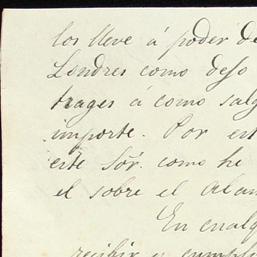 los lleve á poder de
Londres como deso
trages á como salg
importe. Por est
este Sőr. como he
el sobre el Alam
En cualq
recibir y cumpl